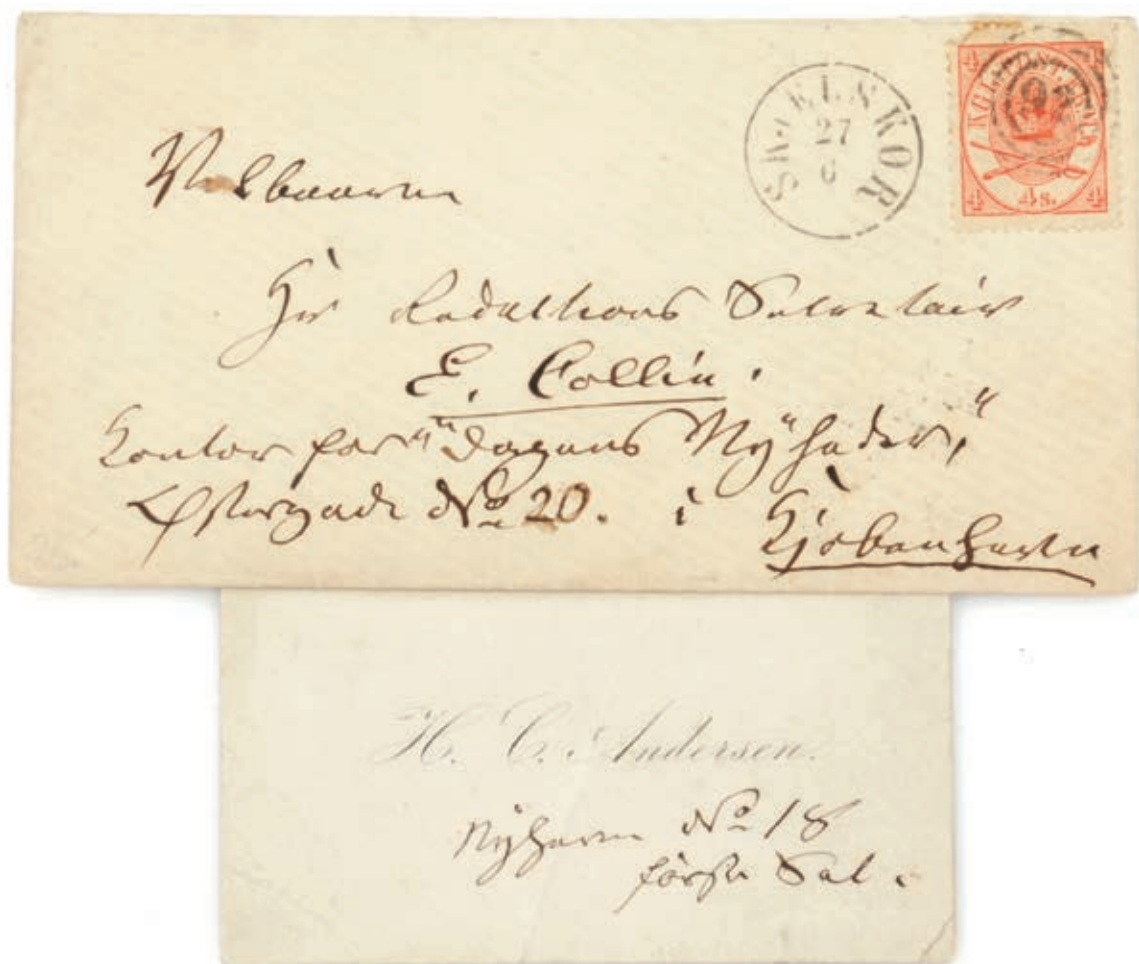 SKJELSKØR
27
6
4 4
KGL POST FRM
4 4s. 4
Velbaarne
Hr Redaktions Secretair
E. Collin.
Kontor for "Dagens Nyheder,"
Østergade No 20. i
Kjøbenhavn
H. C. Andersen.
Nyhavn No 18
første Sal.